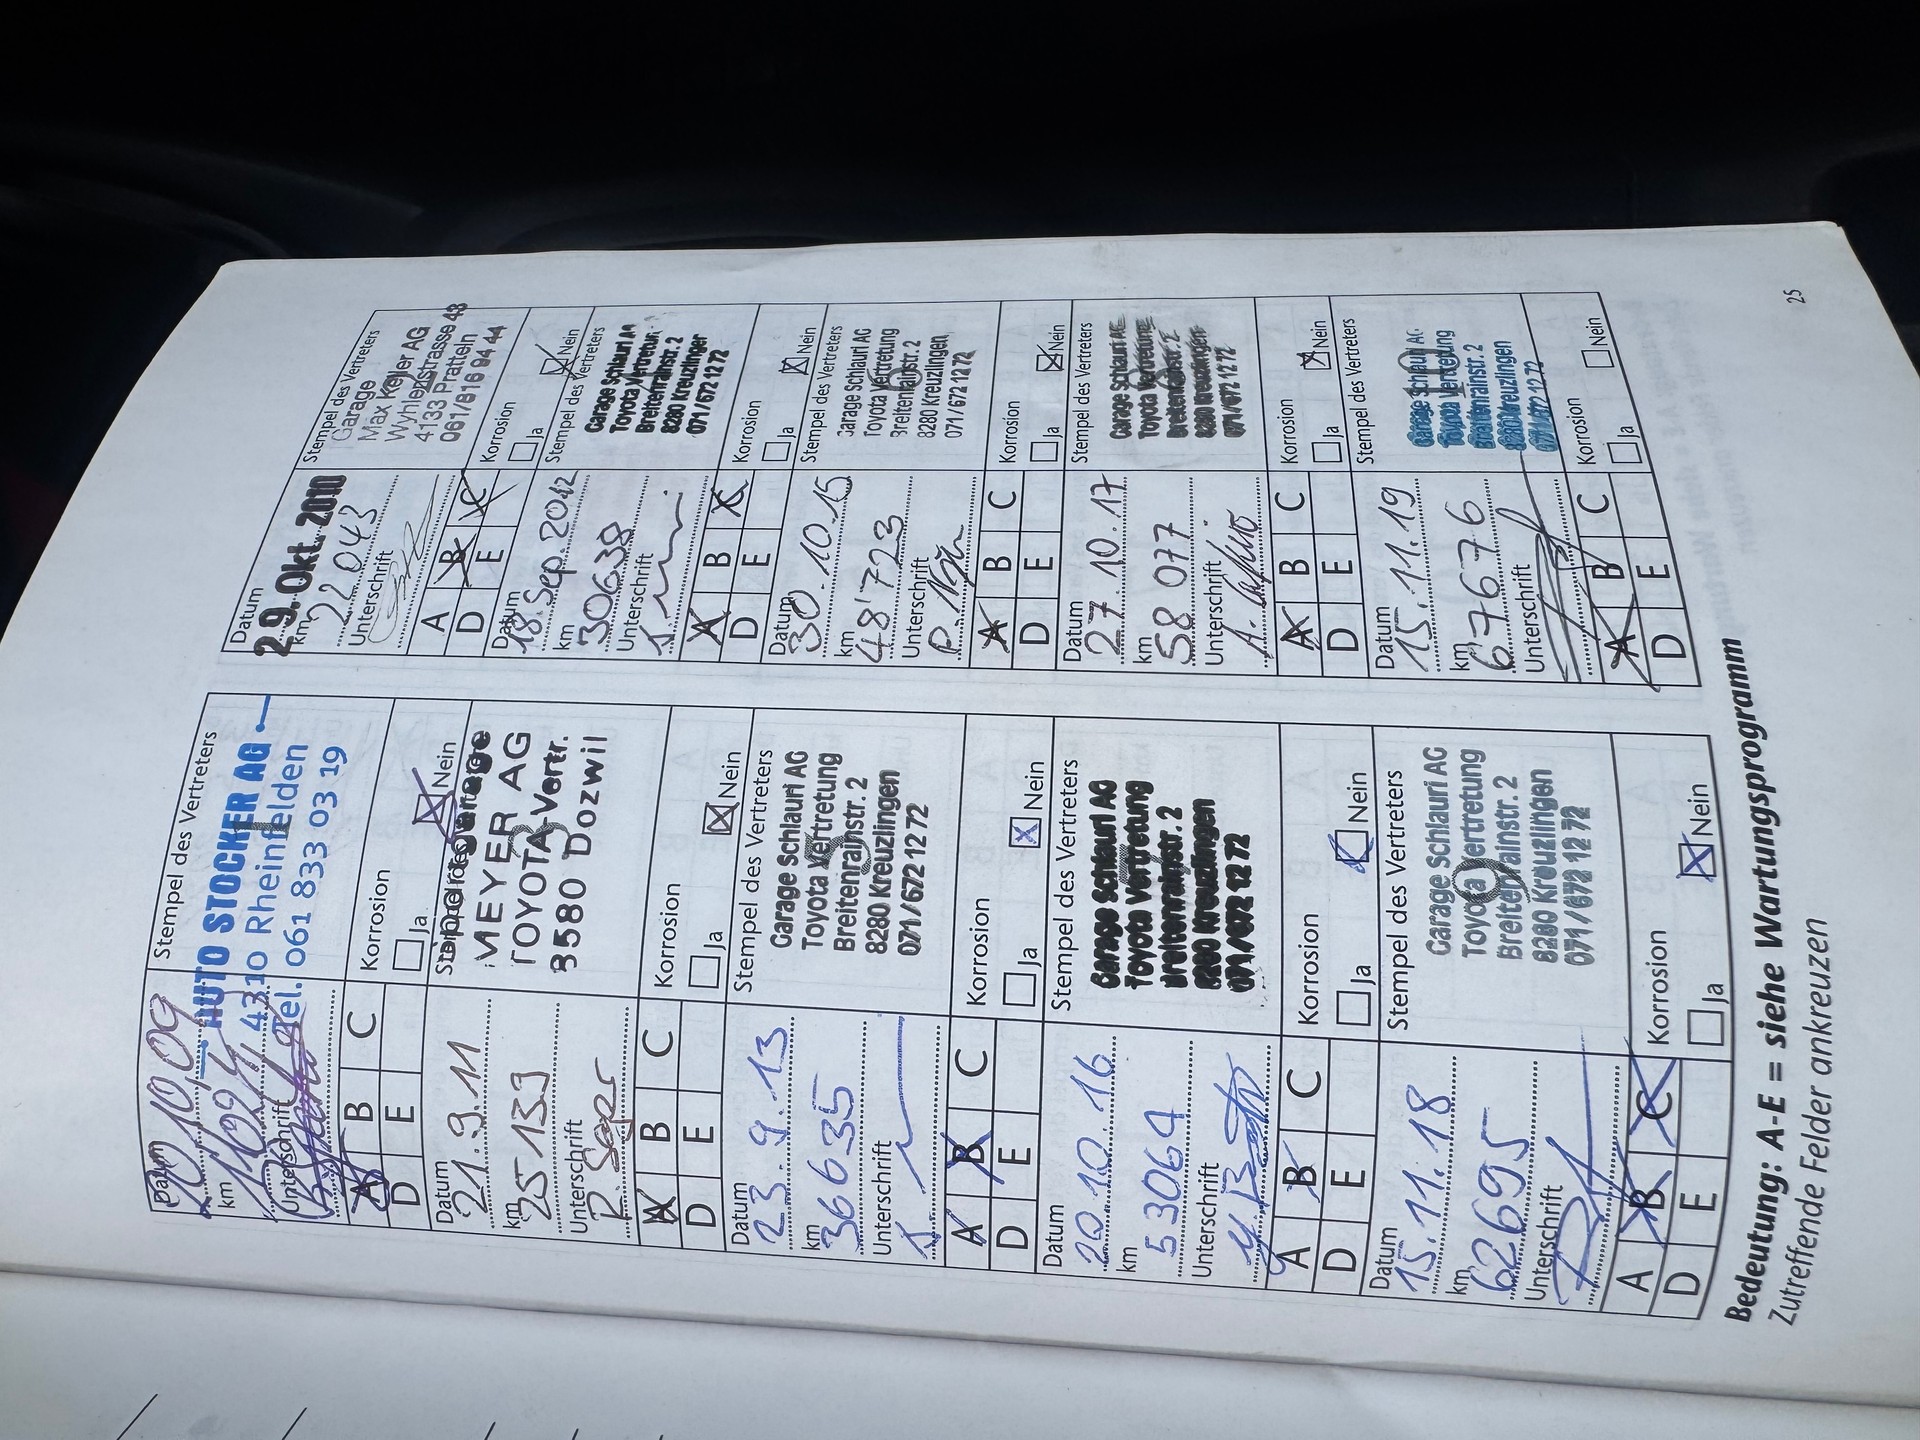 Datum
20.10.09
km
Unterschrift
Stempel des Vertreters
AUTO STOCKER AG
4310 Rheinfelden
Tel. 061 833 03 19
1
A B C
D E
Korrosion
Ja Nein
Datum
29. Okt. 2010
km
22043
Unterschrift
Stempel des Vertreters
Garage
Max Keller AG
Wyhlenstrasse 43
4133 Pratteln
061/816 94 44
A B C
D E
Korrosion
Ja Nein
Datum
21.9.11
km
25139
Unterschrift
Stempel des Vertreters
MEYER AG
TOYOTA-Vertr.
8580 Dozwil
3
A B C
D E
Korrosion
Ja Nein
Datum
18. Sep. 2012
km
30638
Unterschrift
Stempel des Vertreters
Garage Schlauri AG
Toyota Vertretung
Breitenrainstr. 2
8280 Kreuzlingen
071/672 12 72
A B C
D E
Korrosion
Ja Nein
Datum
23.9.13
km
36635
Unterschrift
Stempel des Vertreters
Garage Schlauri AG
Toyota Vertretung
Breitenrainstr. 2
8280 Kreuzlingen
071/672 12 72
5
A B C
D E
Korrosion
Ja Nein
Datum
30.10.15
km
48'723
Unterschrift
Stempel des Vertreters
Garage Schlauri AG
Toyota Vertretung
Breitenrainstr. 2
8280 Kreuzlingen
071/672 12 72
6
A B C
D E
Korrosion
Ja Nein
Datum
20.10.16
km
53064
Unterschrift
Stempel des Vertreters
Garage Schlauri AG
Toyota Vertretung
Breitenrainstr. 2
8280 Kreuzlingen
071/672 12 72
A B C
D E
Korrosion
Ja Nein
Datum
27.10.17
km
58 077
Unterschrift
Stempel des Vertreters
Garage Schlauri AG
Toyota Vertretung
Breitenrainstr. 2
8280 Kreuzlingen
071/672 12 72
8
A B C
D E
Korrosion
Ja Nein
Datum
15.11.18
km
62695
Unterschrift
Stempel des Vertreters
Garage Schlauri AG
Toyota Vertretung
Breitenrainstr. 2
8280 Kreuzlingen
071/672 12 72
9
A B C
D E
Korrosion
Ja Nein
Datum
15.11.19
km
67676
Unterschrift
Stempel des Vertreters
Garage Schlauri AG
Toyota Vertretung
Breitenrainstr. 2
8280 Kreuzlingen
071/672 12 72
10
A B C
D E
Korrosion
Ja Nein
Bedeutung: A-E = siehe Wartungsprogramm
Zutreffende Felder ankreuzen
25